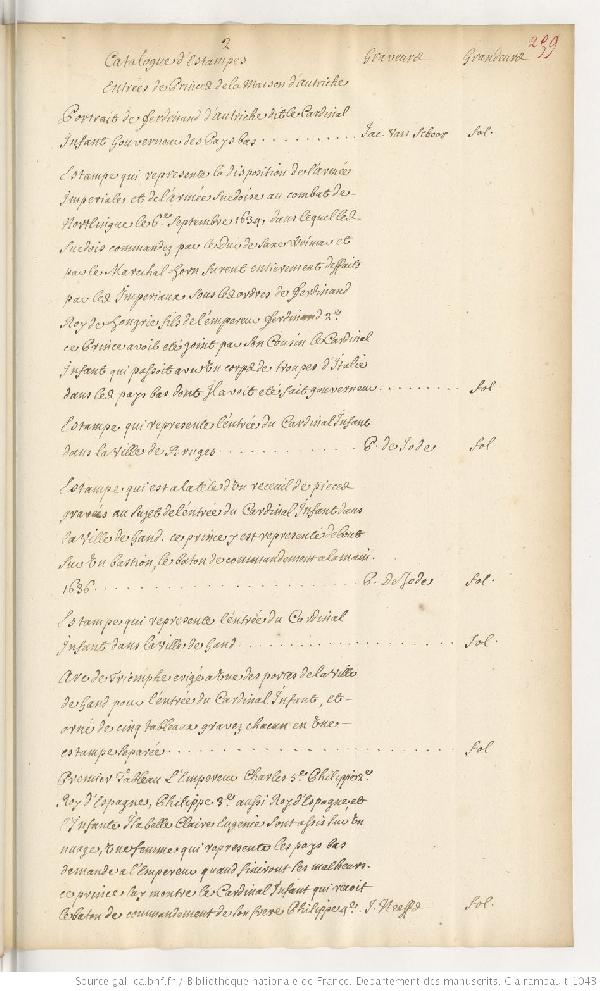 2
299
Catalogue d'Estampes Graveurs Grandeurs
Entrées de Princes de la Maison d'autriche
Portrait de ferdinand d'autriche dit le Cardinal
Infant Gouverneur des Pays bas . . . . . . . . . . Jac. Van Schoor fol.
Estampe qui represente la disposition de l'armée
Imperiale et de l'armée Suedoise au combat de
Nortlingue le 6.me Septembre 1634, dans lequel les
Suedois commandez par le Duc de Saxe Veimar et
par le Marechal Horn furent entierement deffaits
par les Imperiaux sous les ordres de ferdinand
Roy de hongrie fils de l'empereur ferdinand 2.d
ce Prince avoit eté joint par son Cousin le Cardinal
Infant qui passoit avec Un corps de troupes d'Italie
dans les pays bas dont Il avoit eté fait gouverneur . . . . . . . fol
Estampe qui represente l'entrée du Cardinal Infant
dans la Ville de Bruges . . . . . . . . . . . . P. de Jode fol
Estampe qui est a la tête d'Un receuil de pieces
gravées au sujet de l'entrée du Cardinal Infant dans
la Ville de Gand. ce prince y est representé debout
sur Un bastion, le baton de commandement a la main.
1636 . . . . . . . . . . . . . . . . . . . . . P. De Jode fol.
Estampe qui represente l'entrée du Cardinal
Infant dans la Ville de Gand . . . . . . . . . . . . . . . . . . fol.
Arc de Triomphe erigé a Une des portes de la Ville
de Gand pour l'entrée du Cardinal Infant, et
orné de cinq tableaux gravez chacun en Une
estampe separée . . . . . . . . . . . . . . . . . . . . . . . fol
Premier Tableau L'Empereur Charles 5.e Philippe 2.d
Roy d'Espagne, Philippe 3.e aussi Roy d'Espagne et
l'Infante Isabelle Claire Eugenie sont assis sur Un
nuage, Une femme qui represente les pays bas
demande a l'Empereur quand finiront les malheurs.
ce prince luy montre le Cardinal Infant qui reçoit
le baton de commandement de son frere Philippe 4.e J. Neeffs fol.
Source gallica.bnf.fr / Bibliothèque nationale de France. Département des manuscrits. Clairambault 1043